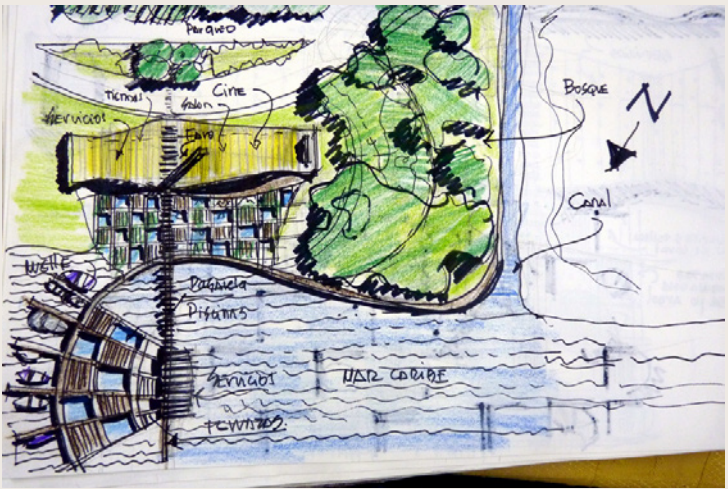 Parqueo
Tiendas
Salon
Cine
Servicios
Faro
BOSQUE
N
Canal
MUELLE
Pasarela
Piscinas
Servicios
MAR CARIBE